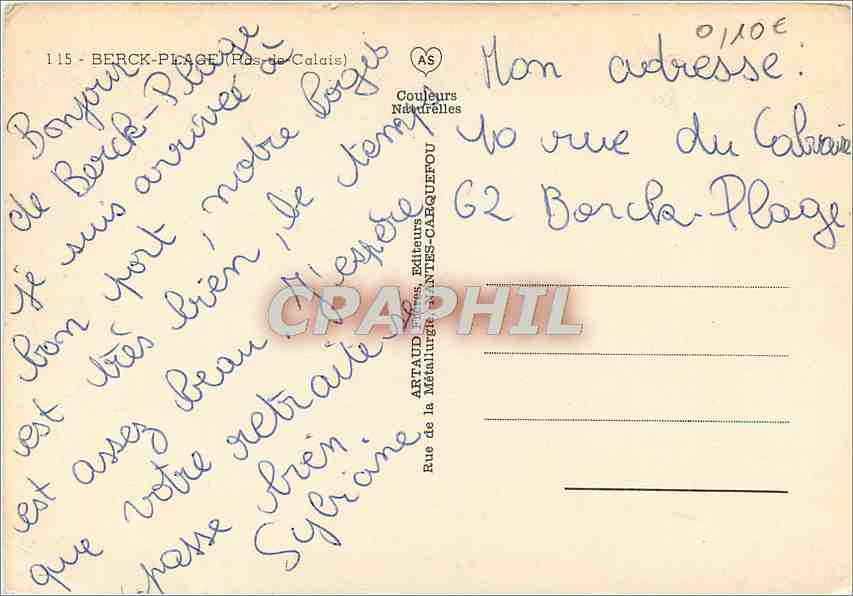 115 - BERCK-PLAGE (Pas-de-Calais)
Bonjour
de Berck-Plage
je suis arrivée à
bon port, notre logis
est très bien, le temps
est assez beau. J'espère
que votre retraite se
passe bien.
Sylviane
AS
Couleurs
Naturelles
ARTAUD Frères, Editeurs
Rue de la Métallurgie, NANTES-CARQUEFOU
0,10€
Mon adresse:
10 rue du Calvaire
62 Berck-Plage
CPAPHIL